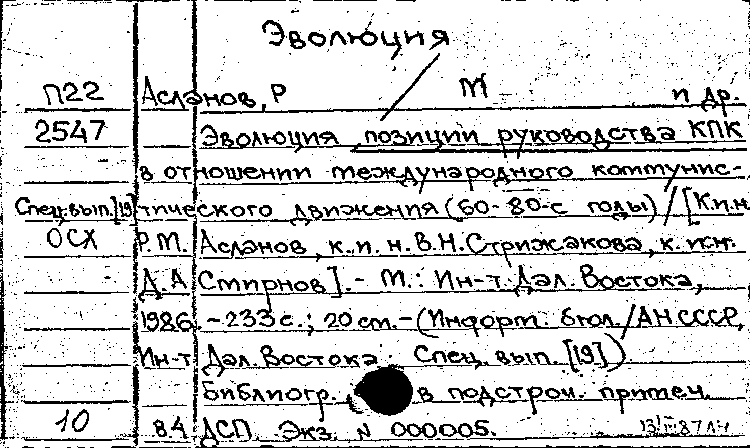 Эволюция
П22 Асланов, Р М и др.
2547 Эволюция позиции руководства КПК
в отношении международного коммунис-
Спец. вып. [19] тического движения (60-80-е годы) / [К.и.н.
ОСХ Р.М. Асланов, к.и.н. В.Н. Стрижакова, к.и.н.
Д.А Смирнов]. - М.: Ин-т Дал. Востока,
1986. - 233 с.; 20 см. - (Информ. бюл. / АН СССР,
Ин-т Дал. Востока. Спец. вып. [19])
Библиогр. в подстроч. примеч.
10 84 ДСП. Экз. N 000005.